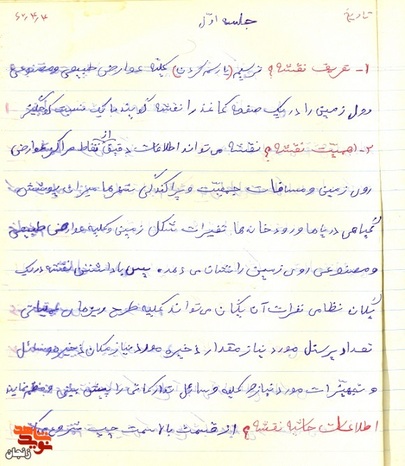 تاریخ ۶۲/۳/۴
جلسه اول
۱- تعریف نقشه؟ ترسیم (یا رسم کردن) کلیه عوارض طبیعی و مصنوعی
روی زمینی را در یک صفحه کاغذ را نقشه گویند با یک نسبت کوچکتر
۲- اهمیت نقشه؟ نقشه می تواند اطلاعات دقیقی از نقاط مراکز عوارض
روی زمینی و مسافات جمعیت و پراکندگی شهرها میزان پوشش
گیاهی دریاها و رودخانه ها. تغییرات شکل زمینی و کلیه عوارض طبیعی
و مصنوعی روی زمین را نشان می دهد. پس با داشتن نقشه در یک
یگان نظامی نفرات آن یگان می تواند کلیه طرح
تعداد پرسنل مورد نیاز مقدار ذخیره مورد نیاز مکان
و تجهیزات مورد نیاز و کلیه وسایل تدارکاتی را پیش بینی و نماید
اطلاعات حاشیه نقشه؟ از قسمت بالا سمت چپ شروع
نوید شاهد
زنجان